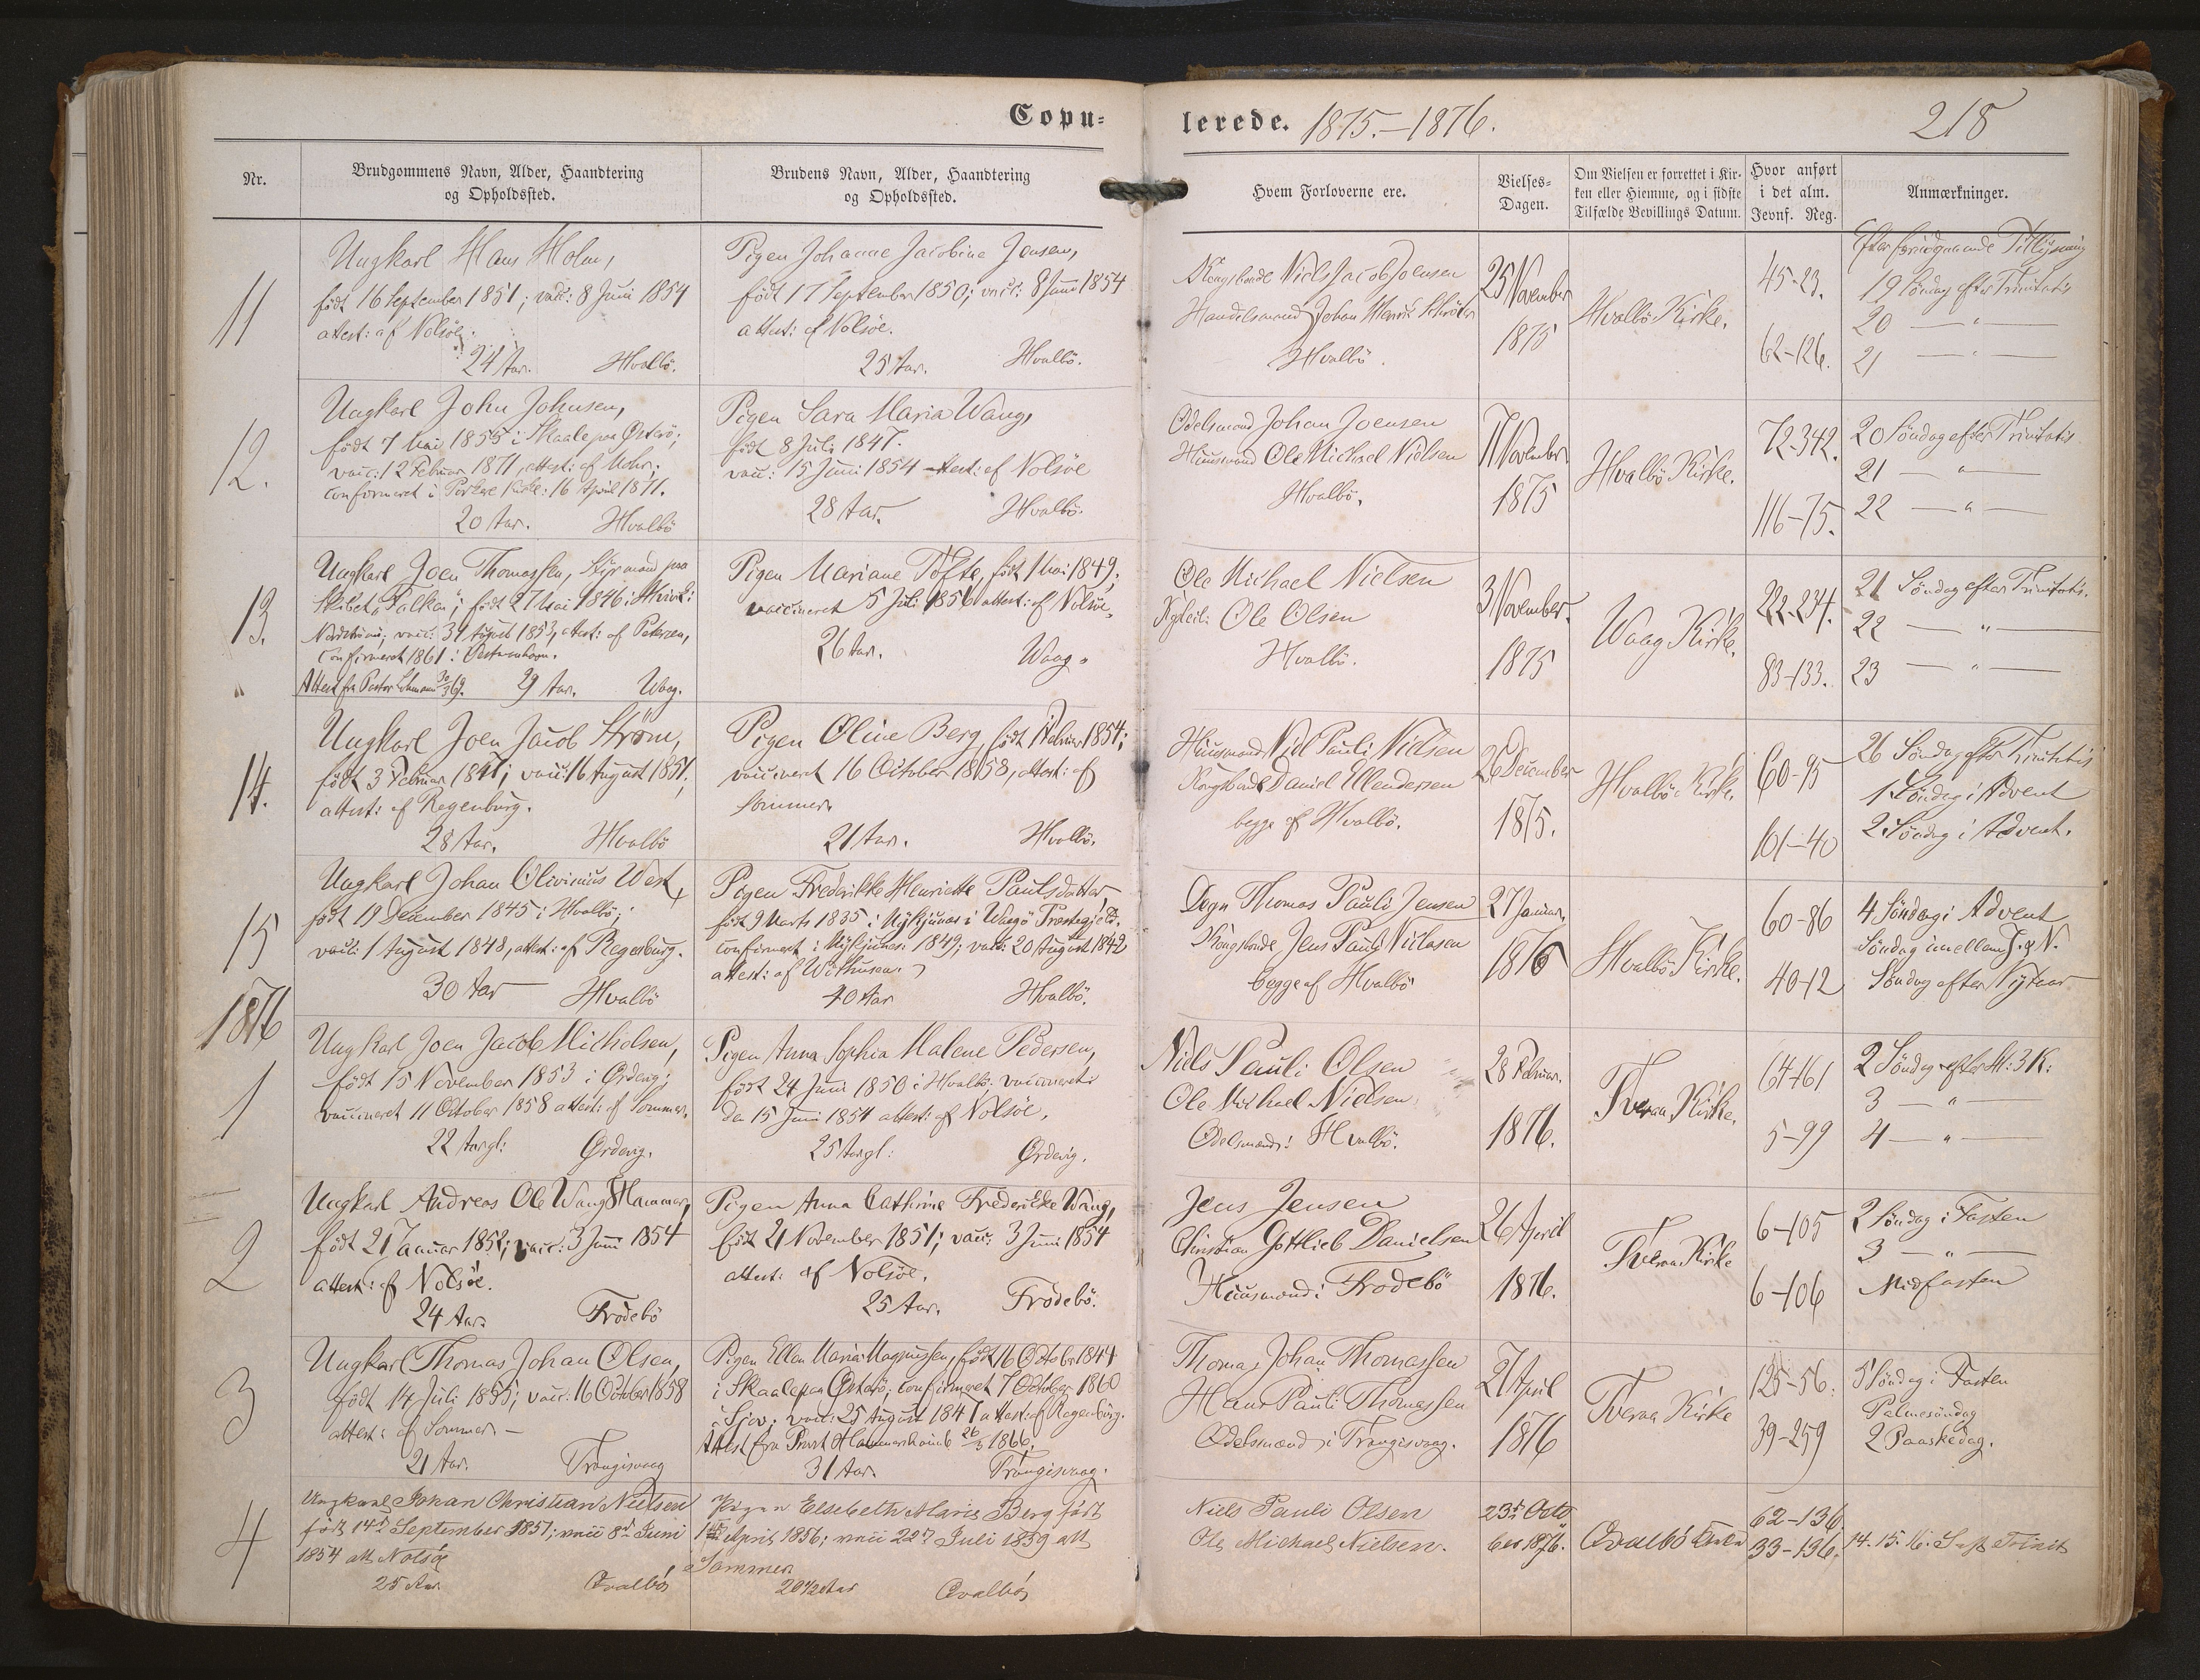 Copu-
lerede. 1875.-1876.
218
Nr.
Brudgommens Navn, Alder, Haandtering
og Opholdssted.
Brudens Navn, Alder, Haandtering
og Opholdssted.
Hvem Forloverne ere.
Vielses-
Dagen.
Om Vielsen er forrettet i Kir-
ken eller Hiemme, og i sidste
Tilfælde Bevillings Datum.
Hvor anført
i det alm.
Jevnf. Reg.
Anmærkninger.
11
Ungkarl Hans Holm,
født 16 September 1851; vacc: 8 Juni 1854
attest: af Nolsöe.
24 Aar. Hvalbö.
Pigen Johanne Jacobine Jensen,
født 17 September 1850; vacc: 8 Juni 1854
attest: af Nolsöe.
25 Aar. Hvalbö.
Kongsbonde Niels Jacob Joensen
Handelsmand Johan Henrik Schröter
Hvalbö.
25 November
1875
Hvalbö Kirke.
45-23.
62-126.
Efter foregaaende Tillysning
19 Söndag efter Trinitatis
20 — " —
21 — " —
12.
Ungkarl John Johnsen,
født 7 Mai 1855 i Skaale paa Österö;
vacc: 12 Februar 1871, attest: af Mohr;
confirmeret i Porkere Kirke: 16 April 1871.
20 Aar. Hvalbö
Pigen Sara Maria Waag,
født 8 Juli 1847.
vacc: 15 Juni 1854 attest: af Nolsöe
28 Aar. Hvalbö.
Odelsmand Johan Joensen
Huusmand Ole Michael Nielsen
Hvalbö.
11 November
1875
Hvalbö Kirke.
72-342.
116-75.
20 Söndag efter Trinitatis
21 — " —
22 — " —
13.
Ungkarl Joen Thomassen, Styrmand paa
Skibet "Falken", født 27 Mai 1846 i Skivik:
Norderöerne; vacc: 31 August 1853, attest: af Petersen,
confirmeret 1861 i Vestmanhavn.
Attest fra Pastor 30/3 69. 29 Aar. Waag.
Pigen Mariane Töfte, født 1 Mai 1849;
vaccineret 5 Juli 1856 attest: af Nolsöe.
26 Aar. Waag.
Ole Michael Nielsen
Ole Olsen
Hvalbö.
3 November.
1875
Waag Kirke.
222-234.
83-133.
21 Söndag efter Trinitatis.
22 — " —
23 — " —
14.
Ungkarl Joen Jacob Ström,
født 3 Februar 1847; vacc: 16 August 1851,
attest: af Regenburg.
28 Aar. Hvalbö
Pigen Oline Berg, født 1 Februar 1854;
vaccineret 16 October 1858, attest: af
Sommer.
21 Aar. Hvalbö.
Huusmand Niel Pauli Nielsen
Kongsbonde Daniel Ellendersen
begge af Hvalbö.
26 December
1875.
Hvalbö Kirke.
60-95
101-40
26 Söndag efter Trinitatis
1 Söndag i Advent
2 Söndag i Advent.
15
Ungkarl Johan Olivinius West,
født 19 December 1845 i Hvalbö;
vacc: 1 August 1848, attest: af Regenburg.
30 Aar Hvalbö
Pigen Frederikke Henriette Paulsdatter,
født 9 Marts 1835 i Mykjunæs i Waagö Præstegjæld.
confirmeret i Mykjunæs 1849; vacc: 20 August 1842
attest: af Withusen.
40 Aar Hvalbö.
Degn Thomas Pauli Jensen
Kongsbonde Jens Pauli Niclasen
begge af Hvalbö
27 Januar.
1876
Hvalbö Kirke.
60-86
40-12
4 Söndag i Advent
Söndag imellem J. & N.
Söndag efter Nytaar
1876
1
Ungkarl Joen Jacob Michelsen,
født 15 November 1853 i Ördevig;
vaccineret 11 October 1858 attest: af Sommer.
22 Aar gl: Ördevig.
Pigen Anna Sophia Malene Pedersen,
født 24 Juni 1850 i Hvalbö. vaccineret
den 15 Juni 1854 attest: af Nolsöe.
25 Aar gl: Ördevig.
Niels Pauli Olsen
Ole Michael Nielsen
Odelsmænd i Hvalbö.
28 Februar.
1876.
Tveraa Kirke.
64-161
5-99
2 Söndag efter H: 3 K:
3 — " —
4 — " —
2
Ungkarl Andreas Ole Wang Hammer,
født 21 Januar 1852; vacc: 3 Juni 1854
attest: af Nolsöe.
24 Aar. Frodebö
Pigen Anna Cathrine Frederikke Wang,
født 21 November 1851; vacc: 3 Juni 1854
attest: af Nolsöe.
25 Aar. Frodebö.
Jens Jensen
Christian Gottlieb Danielsen
Huusmænd i Frodebö
26 April
1876.
Tveraa Kirke
6-105
6-106
2 Söndag i Fasten
3 — " —
Midfasten
3
Ungkarl Thomas Johan Olsen,
født 14 Juli 1855; vacc: 16 October 1858
attest: af Sommer —
21 Aar. Trangisvaag
Pigen Ellen Maria Magnussen, født 16 October 1844
i Skaale paa Österö; confirmeret 7 October 1860
i Sjov; vacc: 25 August 1847 attest: af Regenburg.
Attest fra Provst Hammershaimb 26/3 1866.
31 Aar. Trangisvaag.
Thomas Johan Thomassen
Hans Pauli Thomassen
Odelsmænd i Trangisvaag.
27 April
1876
Tveraa Kirke
125-56.
39-259
5 Söndag i Fasten
Palmesöndag
2 Paaskedag.
4
Ungkarl Johan Christian Nielsen
født 14de September 1851; vacc 8de Juni
1854 att Nolsöe
25 Aar Qvalböe
Pigen Elsebeth Maria Berg født
1ste April 1856; vacc 22de Juli 1859 att
Sommer
20½ Aar Qvalböe
Niels Pauli Olsen
Ole Michael Nielsen.
23de Octo
ber 1876.
Qvalbö Kirke
62-136
33-196.
14. 15. 16. S. eft Trinit